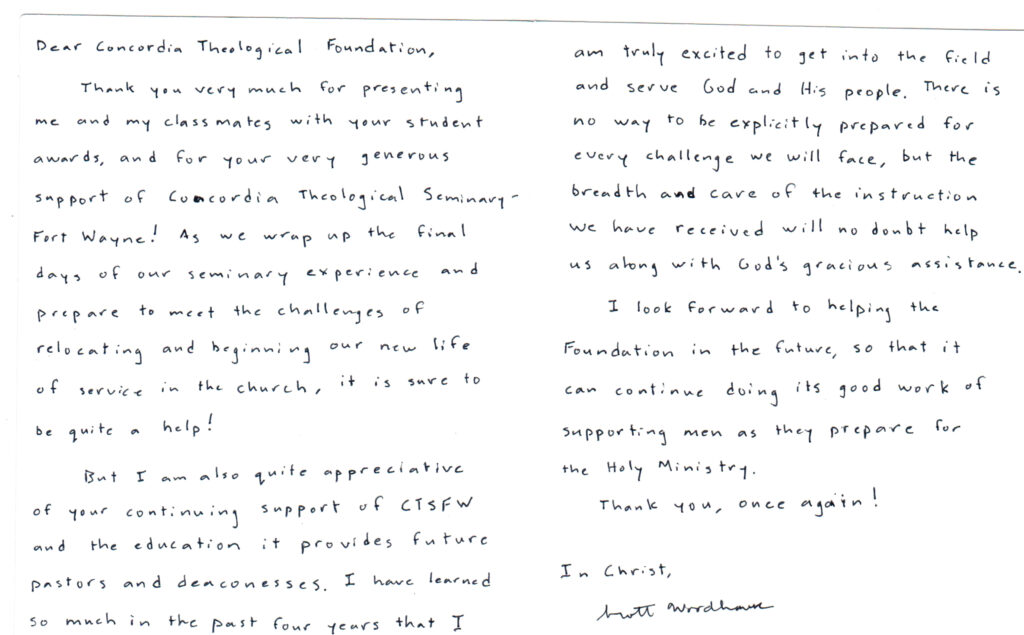 Dear Concordia Theological Foundation,
Thank you very much for presenting
me and my classmates with your student
awards, and for your very generous
support of Concordia Theological Seminary-
Fort Wayne! As we wrap up the final
days of our seminary experience and
prepare to meet the challenges of
relocating and beginning our new life
of service in the church, it is sure to
be quite a help!
But I am also quite appreciative
of your continuing support of CTSFW
and the education it provides future
pastors and deaconesses. I have learned
so much in the past four years that I
am truly excited to get into the field
and serve God and His people. There is
no way to be explicitly prepared for
every challenge we will face, but the
breadth and care of the instruction
we have received will no doubt help
us along with God's gracious assistance.
I look forward to helping the
Foundation in the future, so that it
can continue doing its good work of
supporting men as they prepare for
the Holy Ministry.
Thank you, once again!
In Christ,
Scott